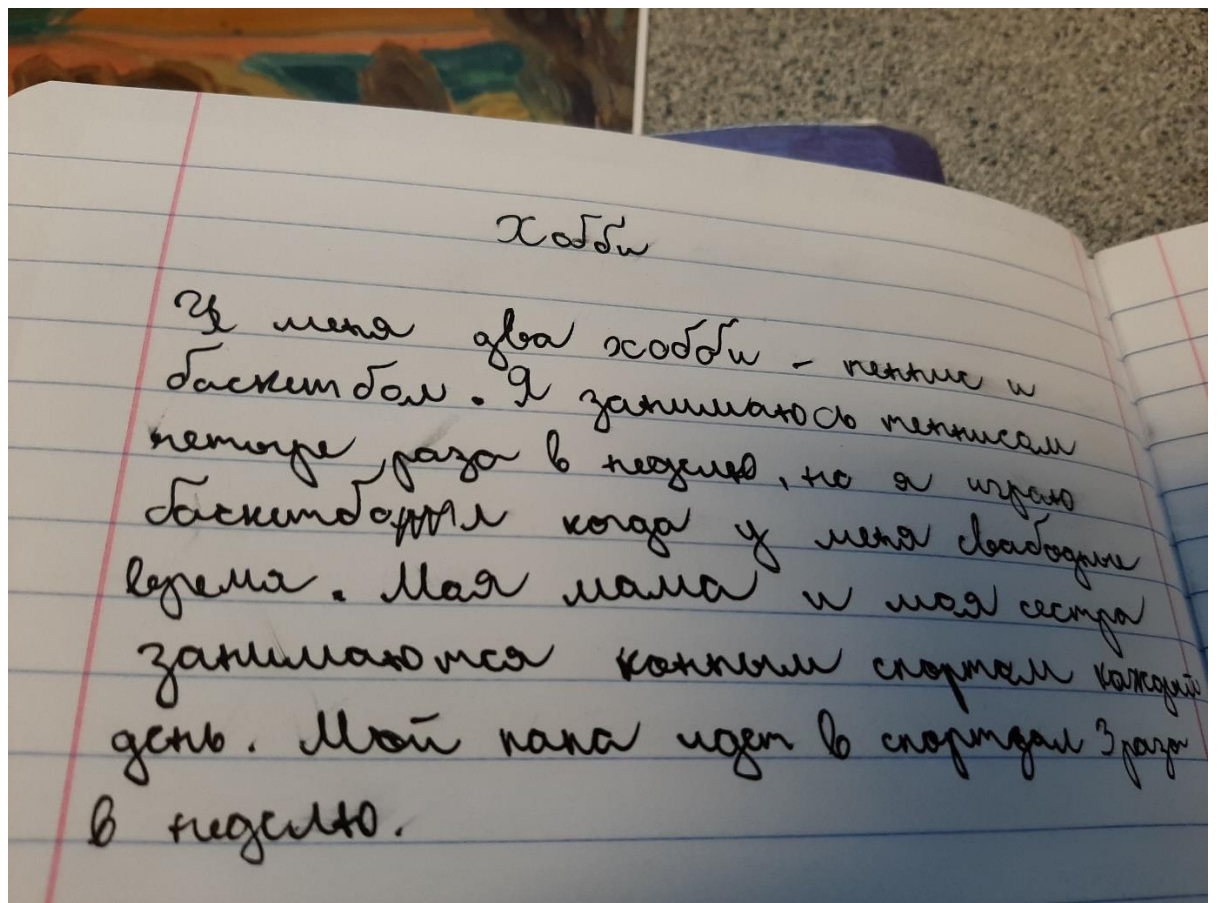 Хобби
У меня два хобби - теннис и
баскитбол. Я занимаюсь теннисам
четыре раза в неделю, но я играю
баскитбол когда у меня свабодные
время. Мая мама и моя сестра
занимаются конным спортам каждый
день. Мой папа идет в спортзал 3 раза
в неделю.